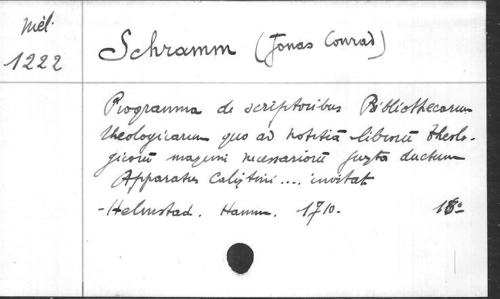 Mél.
1222
Schramm (Jonas Conrad)
Programma de scriptoribus Bibliothecarum
theologicarum quo ad notitiā librorū theolo-
gicorū magni necessariorū juxta ductum
Apparatus Calixtini .... invitat
- Helmstad. Hamm. 1710. 18º